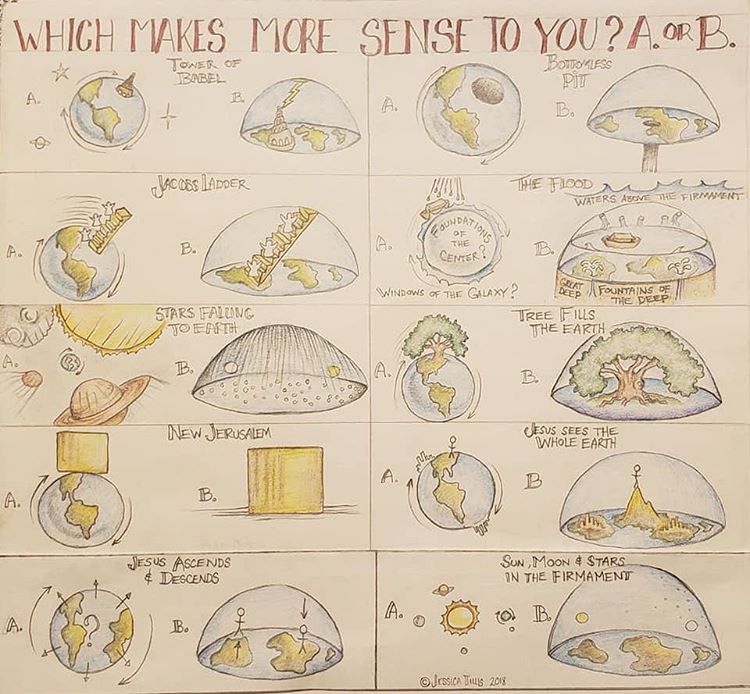 WHICH MAKES MORE SENSE TO YOU? A. OR B.
TOWER OF
BABEL
A.
B.
BOTTOMLESS
PIT
A.
B.
JACOBS LADDER
A.
B.
THE FLOOD
WATERS ABOVE THE FIRMAMENT
A.
FOUNDATIONS
OF THE
CENTER?
WINDOWS OF THE GALAXY?
B.
GREAT
DEEP
FOUNTAINS OF
THE DEEP
STARS FALLING
TO EARTH
A.
B.
TREE FILLS
THE EARTH
A.
B.
NEW JERUSALEM
A.
B.
JESUS SEES THE
WHOLE EARTH
A.
B
JESUS ASCENDS
& DESCENDS
A.
?
B.
SUN, MOON & STARS
IN THE FIRMAMENT
A.
B.
© JESSICA 2018